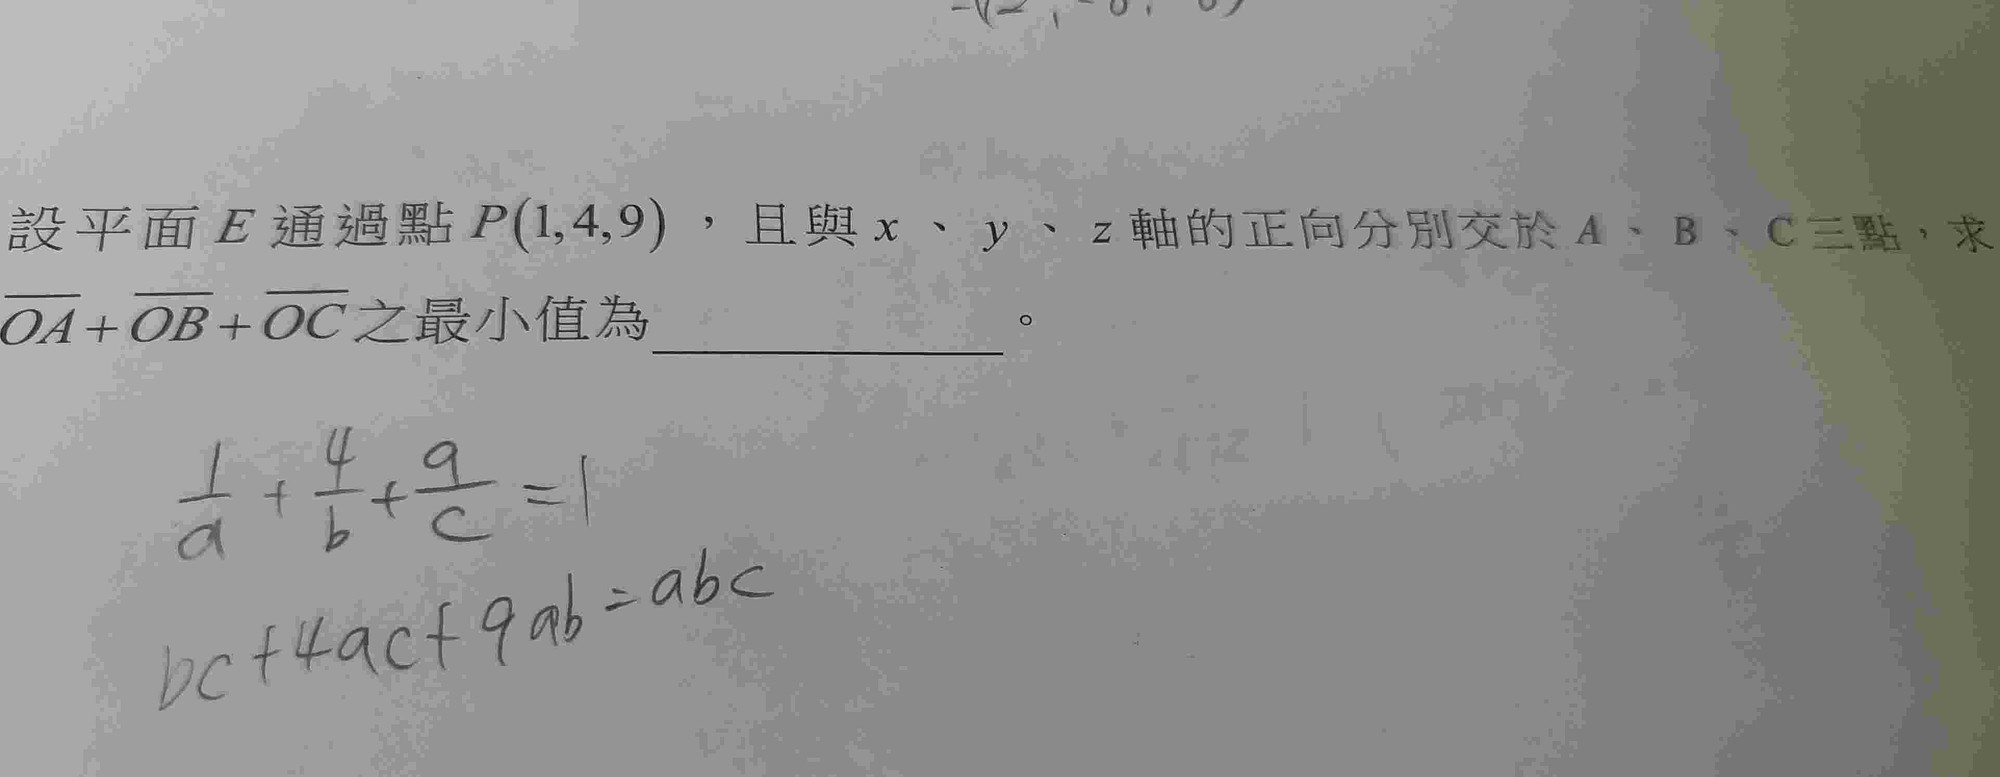 設平面 E 通過點 P(1,4,9),且與 x、y、z 軸的正向分別交於 A、B、C三點,求
OA+OB+OC之最小值為__________。
1/a + 4/b + 9/c = 1
bc+4ac+9ab=abc